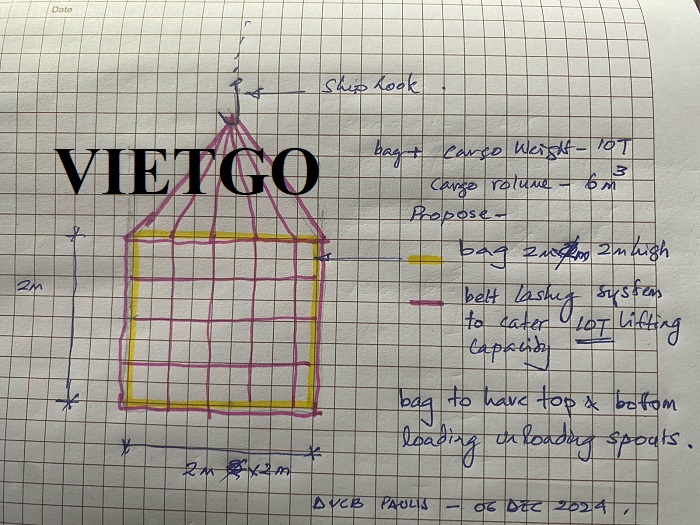 Date
Ship hook .
VIETGO
bag + cargo weight - 10T
cargo volume - 6 m³
Propose -
bag 2m 2m high
2m
belt lashing system
to cater 10T lifting
capacity
bag to have top & bottom
loading unloading spouts.
2m x 2m
PAULIS - 06 DEC 2024 .